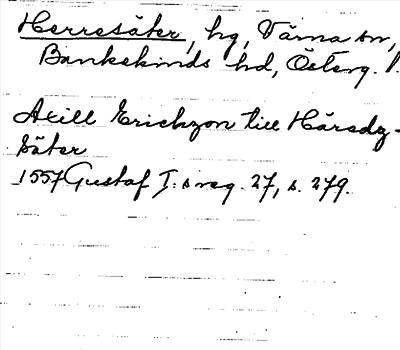 Herresäter, hg, Värna sn,
Bankekinds hd, Österg. l.
Axill Erickzon till Häredz-
säter
1557 Gustaf I:s reg. 27, s. 279.